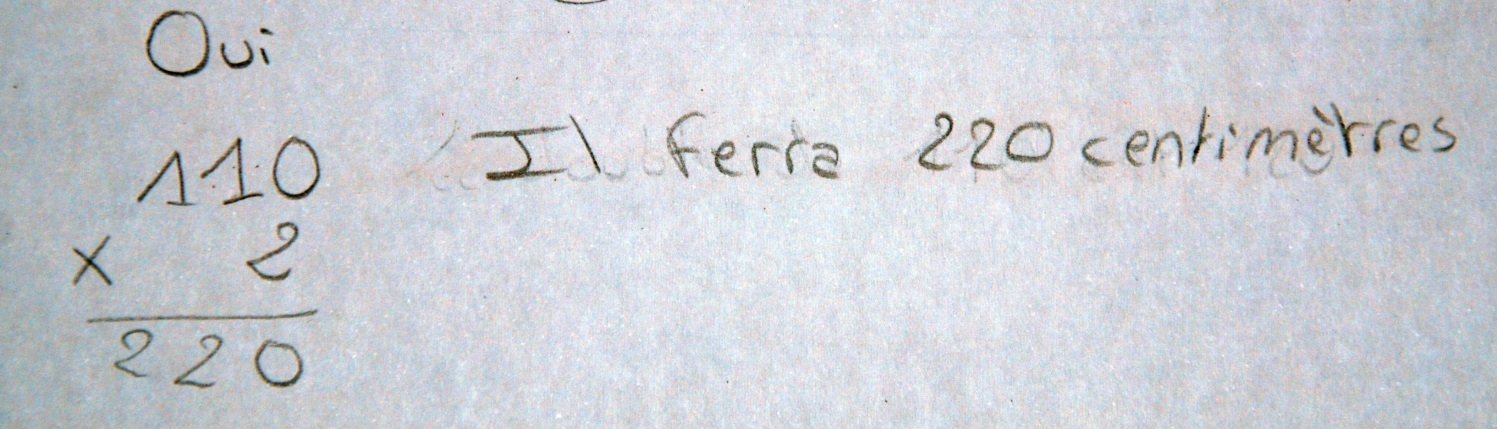 Oui
110
× 2
220
Il ferra 220 centimètres